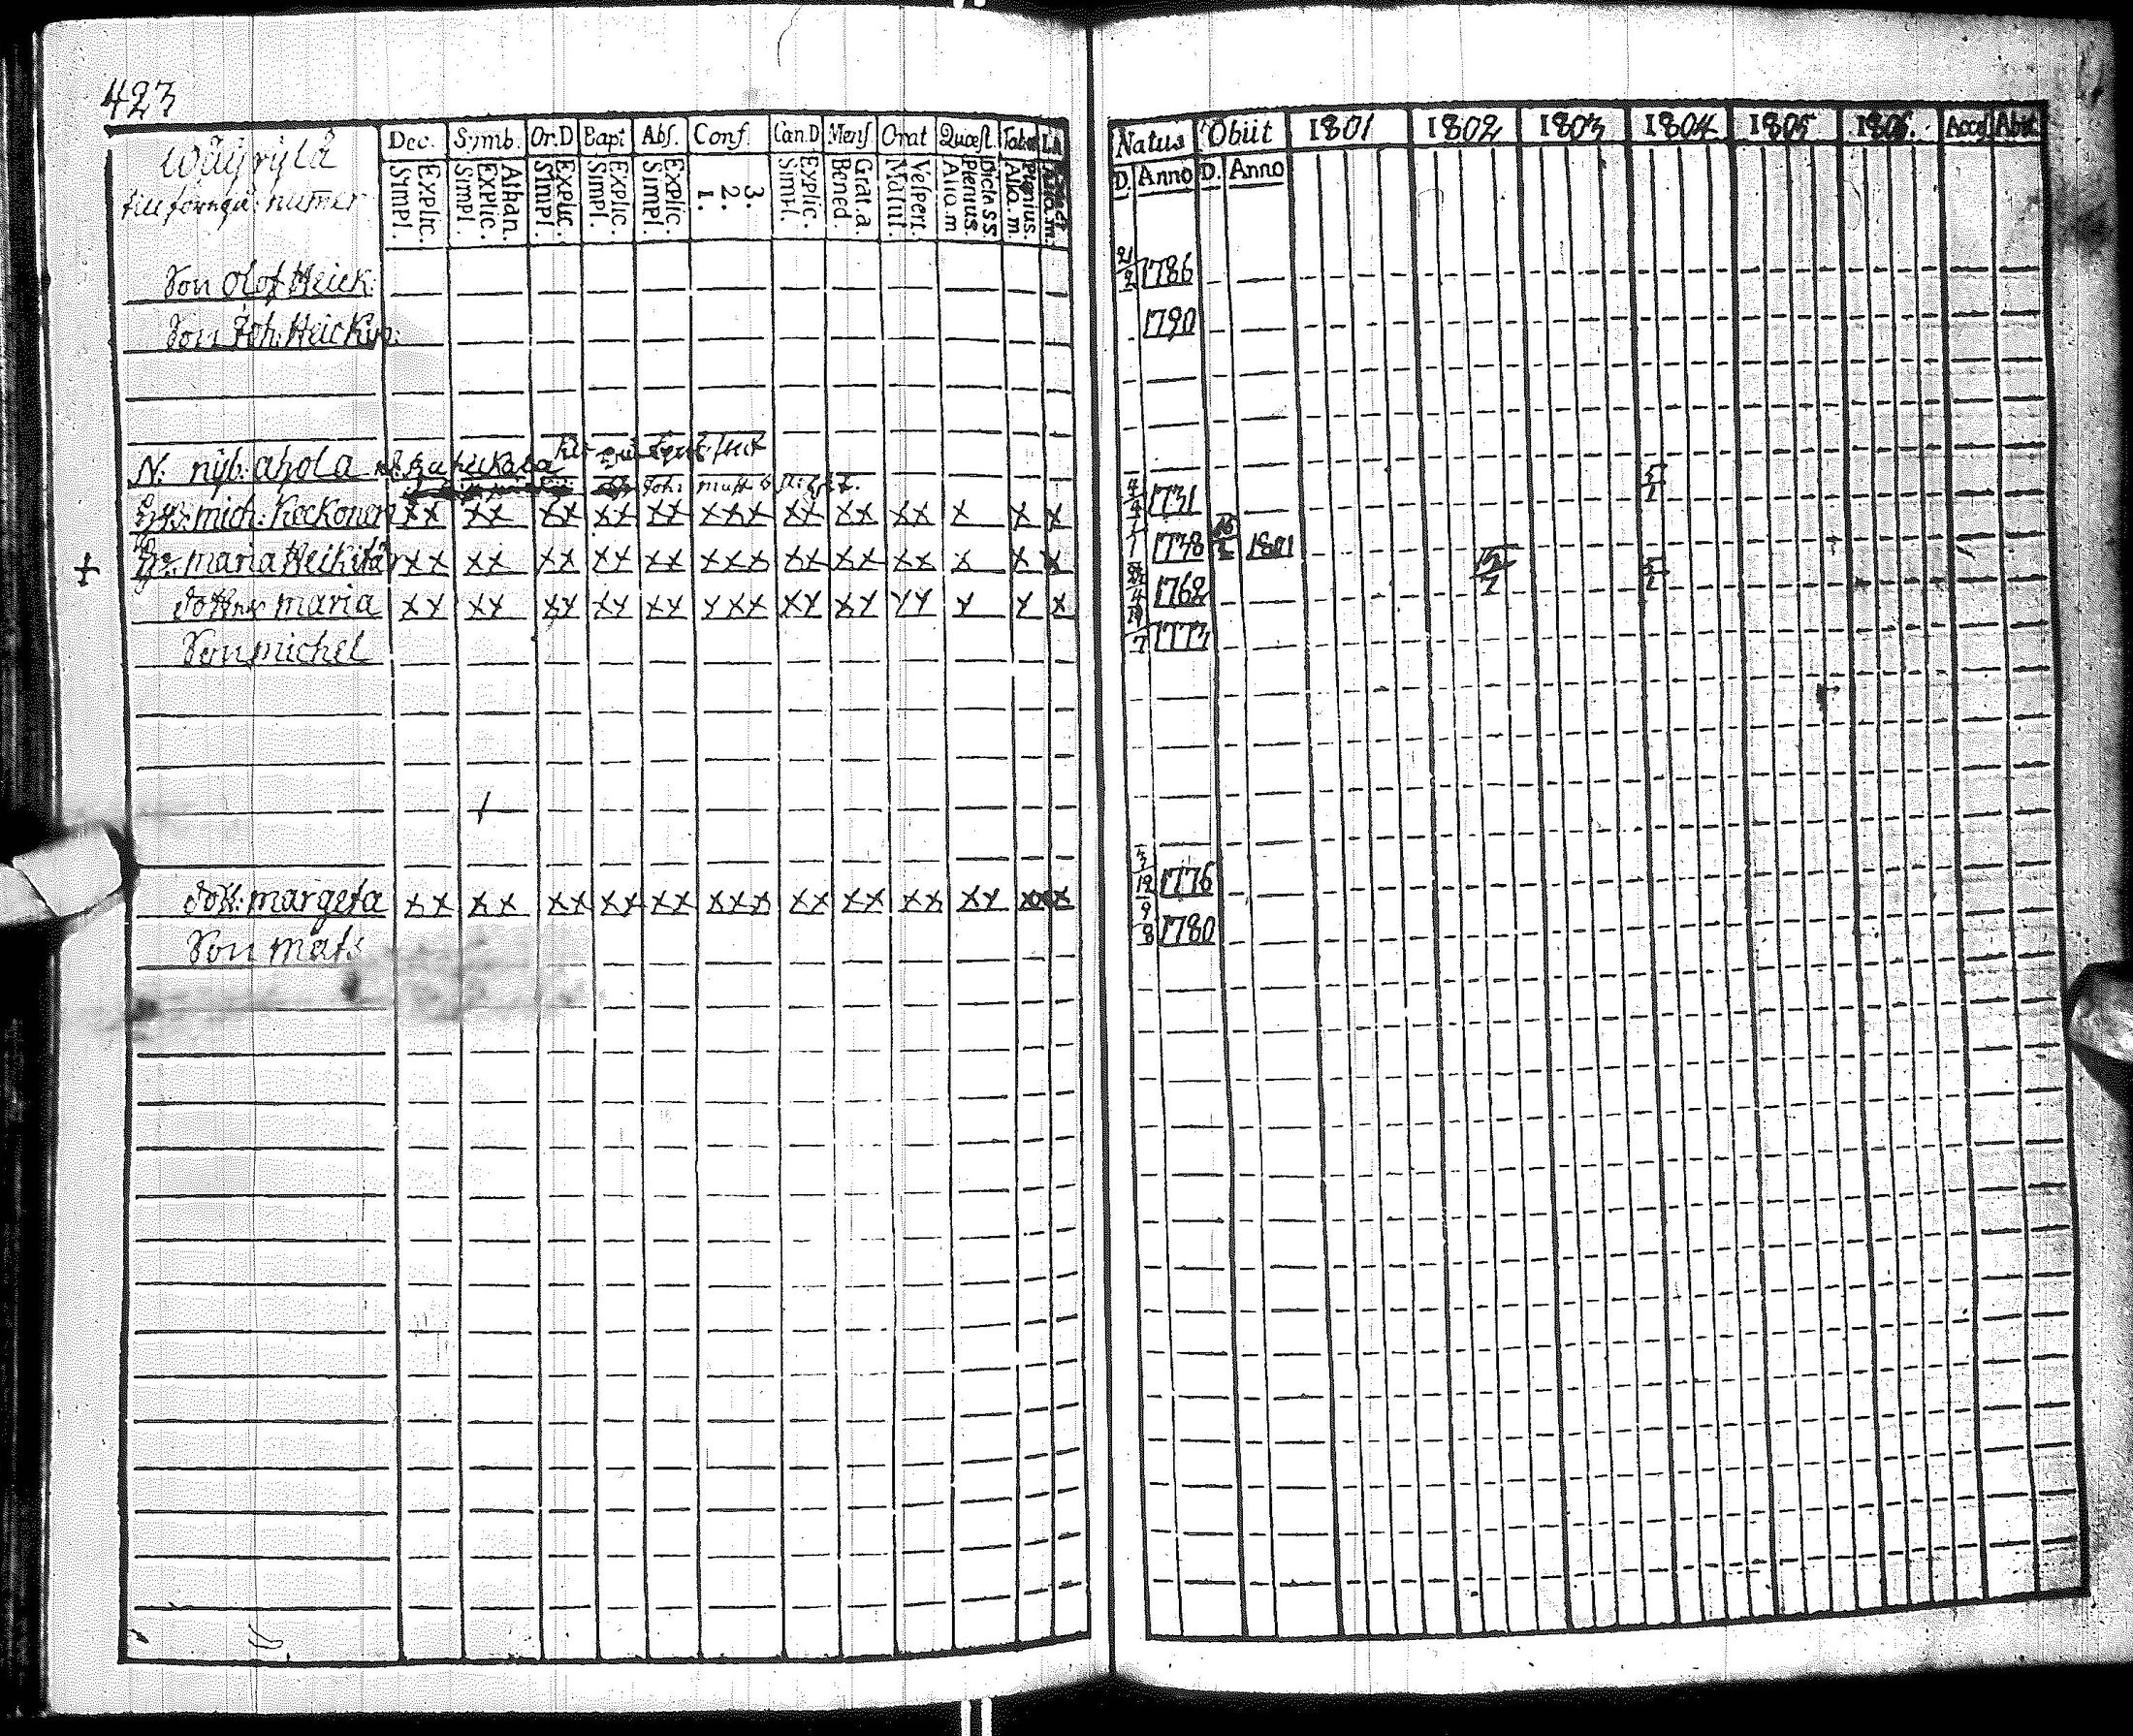 423
Wäÿrÿlä
till förngå: numer
Dec. Symb. Or.D Bapt Abſ. Conf. Can.D Menſ Orat Quæſt. Tab. Natus Obiit 1801 1802 1803 1804 1805 1806. Acceſ Abiit
Simpl. Explic. Simpl. Explic. Athan. Simpl. Explic. Simpl. Explic. Simpl. Explic. 1. 2. 3. Simpl. Explic. Bened. Grat.a. Matut. Veſpert. Alio.m Plenius. Dicta SS Alio.m. Plenius. Alio.m. D. Anno D. Anno
Son Olof Heick: 21/2 1786
Son Joh: Heickin: 1790
N: nÿb: ahola
mich: Keckonen XX XX XX XX XX XXX XX XX XX X X X 4/4 1731 5/1
maria Heikitär XX XX XX XX XX XXX XX XX XX X X X 1/1 1738 1801
dottner maria XX XX XX XX XX XXX XX XX XX X X X 1762
Son michel 1773
dott: margeta XX XX XX XX XX XXX XX XX XX XX XX X 12 1776
Son mats 9/8 1780